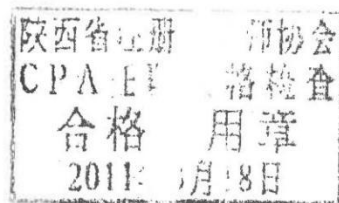 陕西省注册 师协会
CPA 格检查
合格 用章
2011 月18日